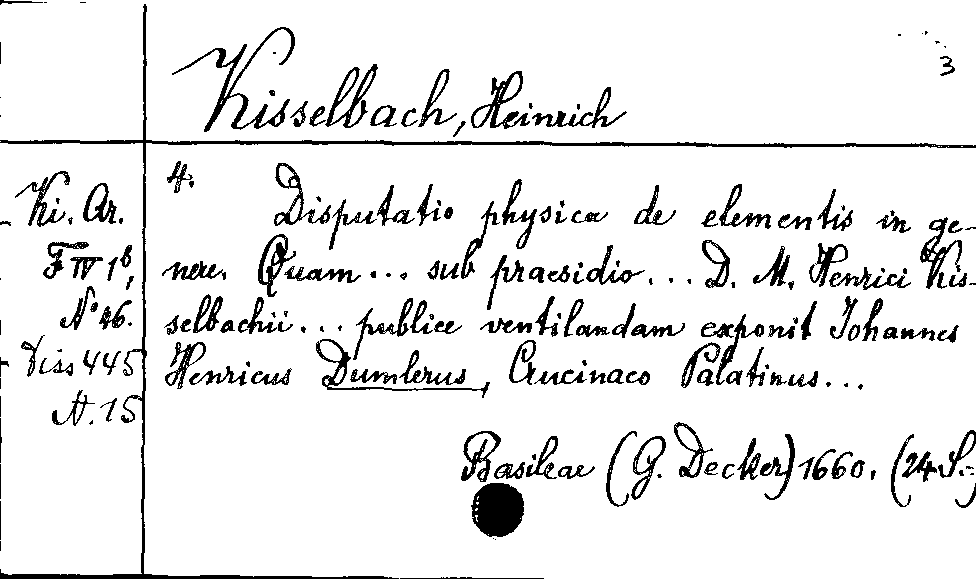 3
Kisselbach, Heinrich
Ki. Ar.
F IV 1⁸,
N° 26.
Diss 445
N. 15
4.
Disputatio physica de elementis in ge-
nere. Quam... sub praesidio... D. M. Henrici Kis-
selbachii... publice ventilandam exponit Johannes
Henricus Dumlerus, Crucinaco Palatinus...
Basileae (G. Decker) 1660. (24 S.)